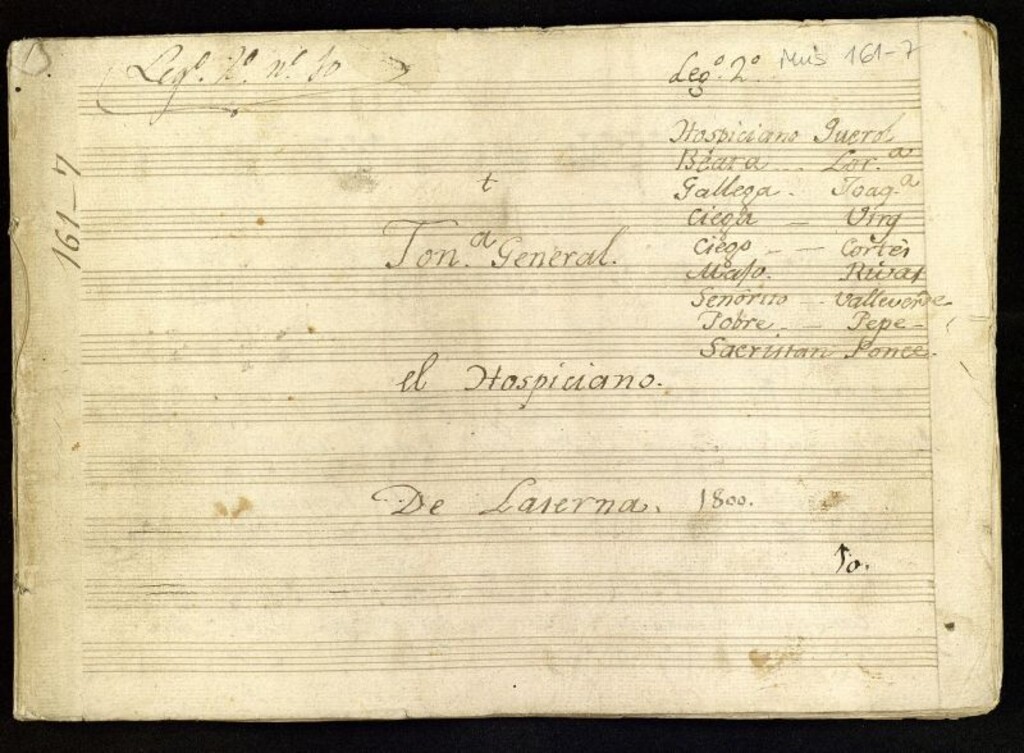 Leg.º 2.º n.º 10
Leg.º 2.º
Mus 161-7
161-7
Hospiciano Querol
Beata - Lor.ª
Gallega - Joaq.ª
Ciega - Virg
Ciego - Cortés
Majo. Rivas
Señorito - Valleverde
Pobre - Pepe -
Sacristan Ponce.
t
Ton.ª General.
el Hospiciano.
De Laserna. 1800.
10.